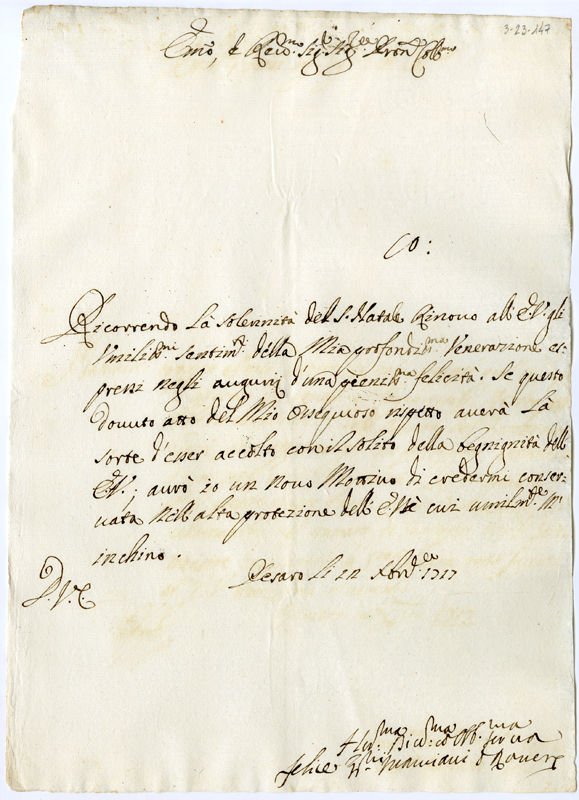 3-23-147
Emo, e Revmo. Sigr. Sigr. Pron. Colmo
Co:
Ricorrendo La solennità del S. Natale Rinovo all'E.V. gli
Umiliss.mi sentim.ti della Mia profondiss.ma Venerazione es-
pressi negli augurij d'una pieniss.ma felicità. Se questo
dovuto atto del Mio Ossequioso rispetto averà La
sorte d'esser accolto con il solito della begnignità dell'
E.V., avrò io un novo Mottivo di credermi conser-
vata Nell'alta protezione dell'E.V. è cui umilm.te M'
inchino.
D.V.E.
Pesaro Li 12
1717
felice Mamiani d Rovere